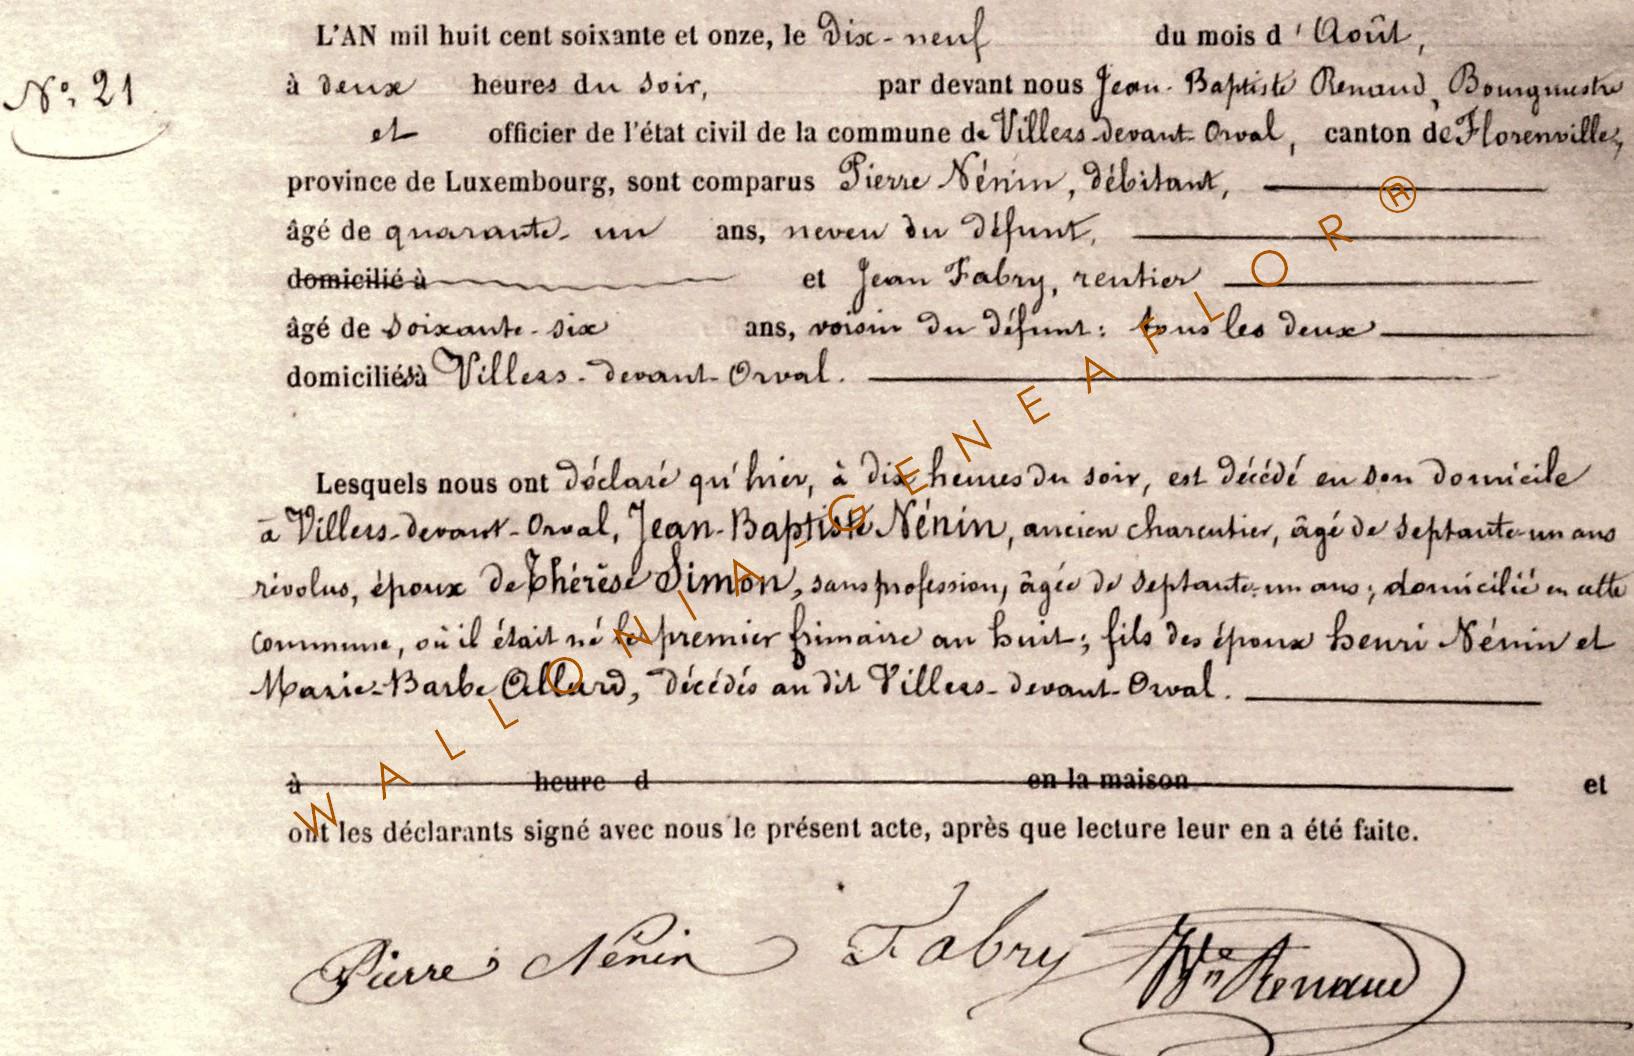 L'AN mil huit cent soixante et onze, le dix-neuf du mois d'Août,
N° 21
à deux heures du soir, par devant nous Jean-Baptiste Renaud, Bourgmestre
et officier de l'état civil de la commune de Villers-devant-Orval, canton de Florenville,
province de Luxembourg, sont comparus Pierre Nénin, débitant,
âgé de quarante-un ans, neveu du défunt,
domicilié à et Jean Fabry, rentier
âgé de soixante-six ans, voisin du défunt: tous les deux
domiciliés à Villers-devant-Orval.
Lesquels nous ont déclaré qu'hier, à dix heures du soir, est décédé en son domicile
à Villers-devant-Orval, Jean-Baptiste Nénin, ancien charentier, âgé de septante-un ans
révolus, époux de Thérèse Simon, sans profession, âgée de septante-un ans; domicilié en cette
commune, où il était né le premier frimaire an huit; fils des époux henri Nénin et
Marie-Barbe Allard, décédés au dit Villers-devant-Orval.
à heure d en la maison et
ont les déclarants signé avec nous le présent acte, après que lecture leur en a été faite.
Pierre Nénin Fabry Renaud
WALLONIA-GENEAFLOR®